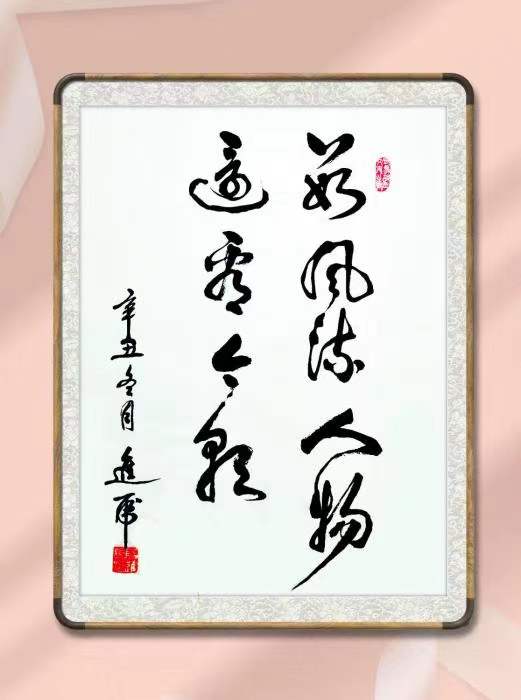 数风流人物
還看今朝
辛丑冬月 進